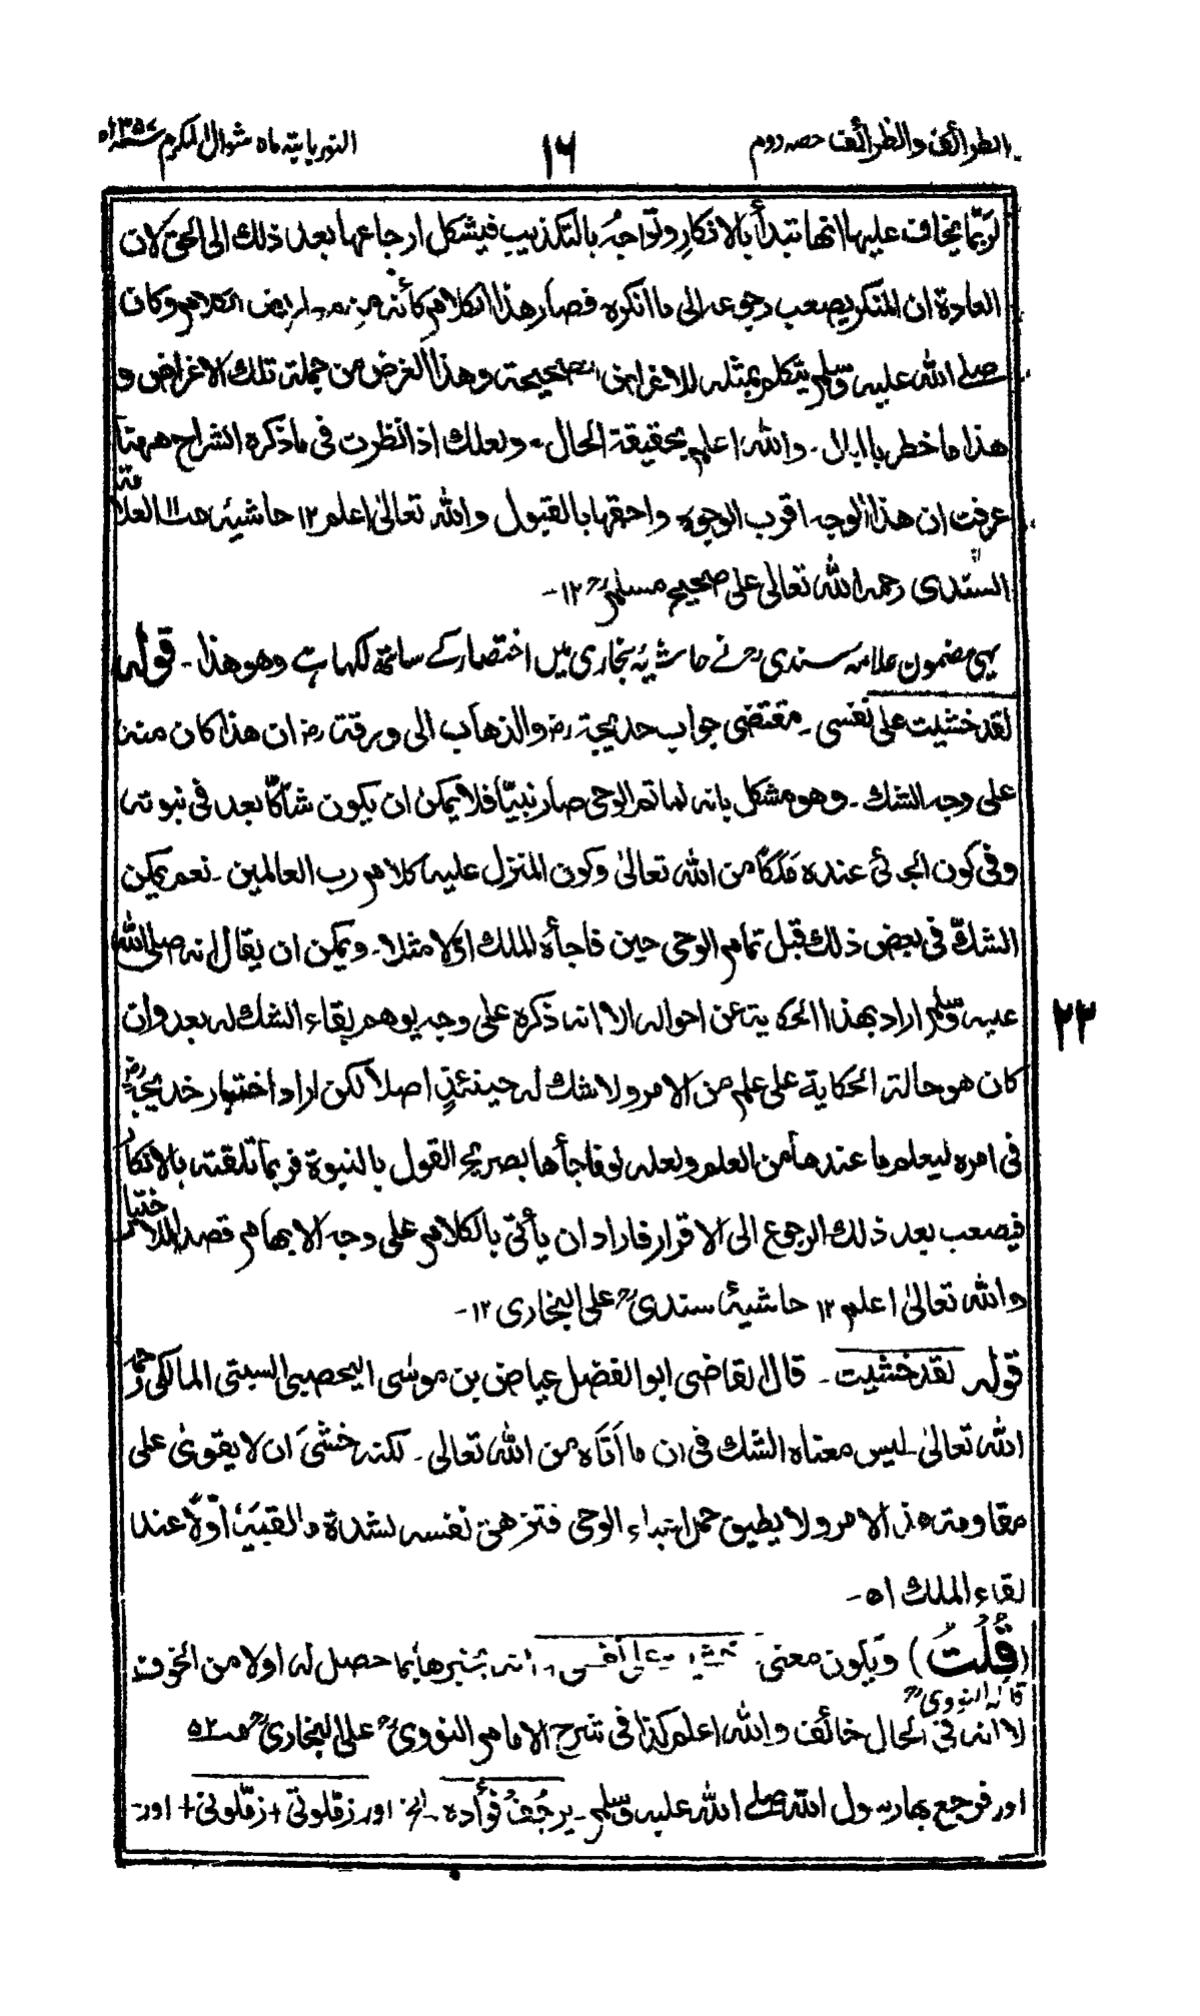 الطرائف والظرائف حصہ دوم ۱۶ النور بابتہ ماہ شوال المکرم ۱۳۵۷ھ
لربّما یخاف علیہا انھا تبتدأ بالانکار وتواجہ بالتکذیب فیشکل ارجاعہا بعد ذلک الی الحق لان
العادۃ ان المنکر یصعب رجوعہ الی ما انکرہ فصار ھذا الکلام کأنہ من معاریض الکلام وکان
صلے اللہ علیہ وسلم یتکلم بمثلہ للاغراض الصحیحۃ وھذا الغرض من جملۃ تلک الاغراض و
ھذا ما خطر بالبال۔ واللہ اعلم بحقیقۃ الحال۔ ولعلک اذا نظرت فی ما ذکرہ الشراح ھہنا
عرفت ان ھذا الوجہ اقرب الوجوہ واحقہا بالقبول واللہ تعالیٰ اعلم ۱۲ حاشیۃ العلامۃ
السندی رحمہ اللہ تعالی علی صحیح مسلم ۱۲۔
یہی مضمون علامہ سندیؒ نے حاشیۂ بخاری میں اختصار کے ساتھ لکہا ہے وھو ھذا۔ قولہ
لقد خشیت علی نفسی۔ مقتضی جواب خدیجۃ رض والذھاب الی ورقۃ رض ان ھذا کان منہ
علی وجہ الشک۔ وھو مشکل بانہ لما تم الوحی صار نبیّا فلا یمکن ان یکون شاکّا بعد فی نبوتہ
وفی کون الجائی عندہ مَلَکًا من اللہ تعالیٰ وکون المنزل علیہ کلام رب العالمین۔ نعم یمکن
الشکّ فی بعض ذلک قبل تمام الوحی حین فاجأہ الملک اوّلا مثلا۔ ویمکن ان یقال انہ صلی اللہ
علیہ وسلم اراد بھذا الحکایۃ عن احوالہ الا انہ ذکرہ علی وجہ یوھم بقاء الشک لہ بعد وان
۲۳
کان ھو حالۃ الحکایۃ علی علم من الامر ولا شک لہ حینئذٍ اصلا لکن اراد اختبار خدیجۃ رض
فی امرہ لیعلم ما عندھا من العلم ولعلہ لو فاجأھا بصریح القول بالنبوۃ فربما تلقتہ بالانکار
فیصعب بعد ذلک الرجوع الی الاقرار فاراد ان یأتی بالکلام علی وجہ الابھام قصدا للاختبار
واللہ تعالیٰ اعلم ۱۲ حاشیۂ سندیؒ علی البخاری ۱۲۔
قولہ لقد خشیت۔ قال القاضی ابو الفضل عیاض بن موسٰی الیحصبی السبتی المالکی رحمہ
اللہ تعالیٰ۔ لیس معناہ الشک فی ان ما اَتَاہ من اللہ تعالی۔ لکنہ خشیَ ان لا یقویٰ علی
مقاومۃ ھذا الامر ولا یطیق حمل ابتداء الوحی فتزھق نفسہ لشدۃ ما لقیَہٗ اوّلًا عند
لقاء الملک اھ۔
(قُلتُ) ویکون معنی خشیت علی نفسی انہ یخبرھا بما حصل لہ اولا من الخوف
قالہ النوویؒ
لا انہ فی الحال خائف واللہ اعلم کذا فی شرح الامام النوویؒ علی البخاریؒ
اور فرجع بھا رسول اللہ صلے اللہ علیہ وسلم۔ یرجُفُ فُوأدہ۔ الخ اور زملونی + زملونی + اور۔